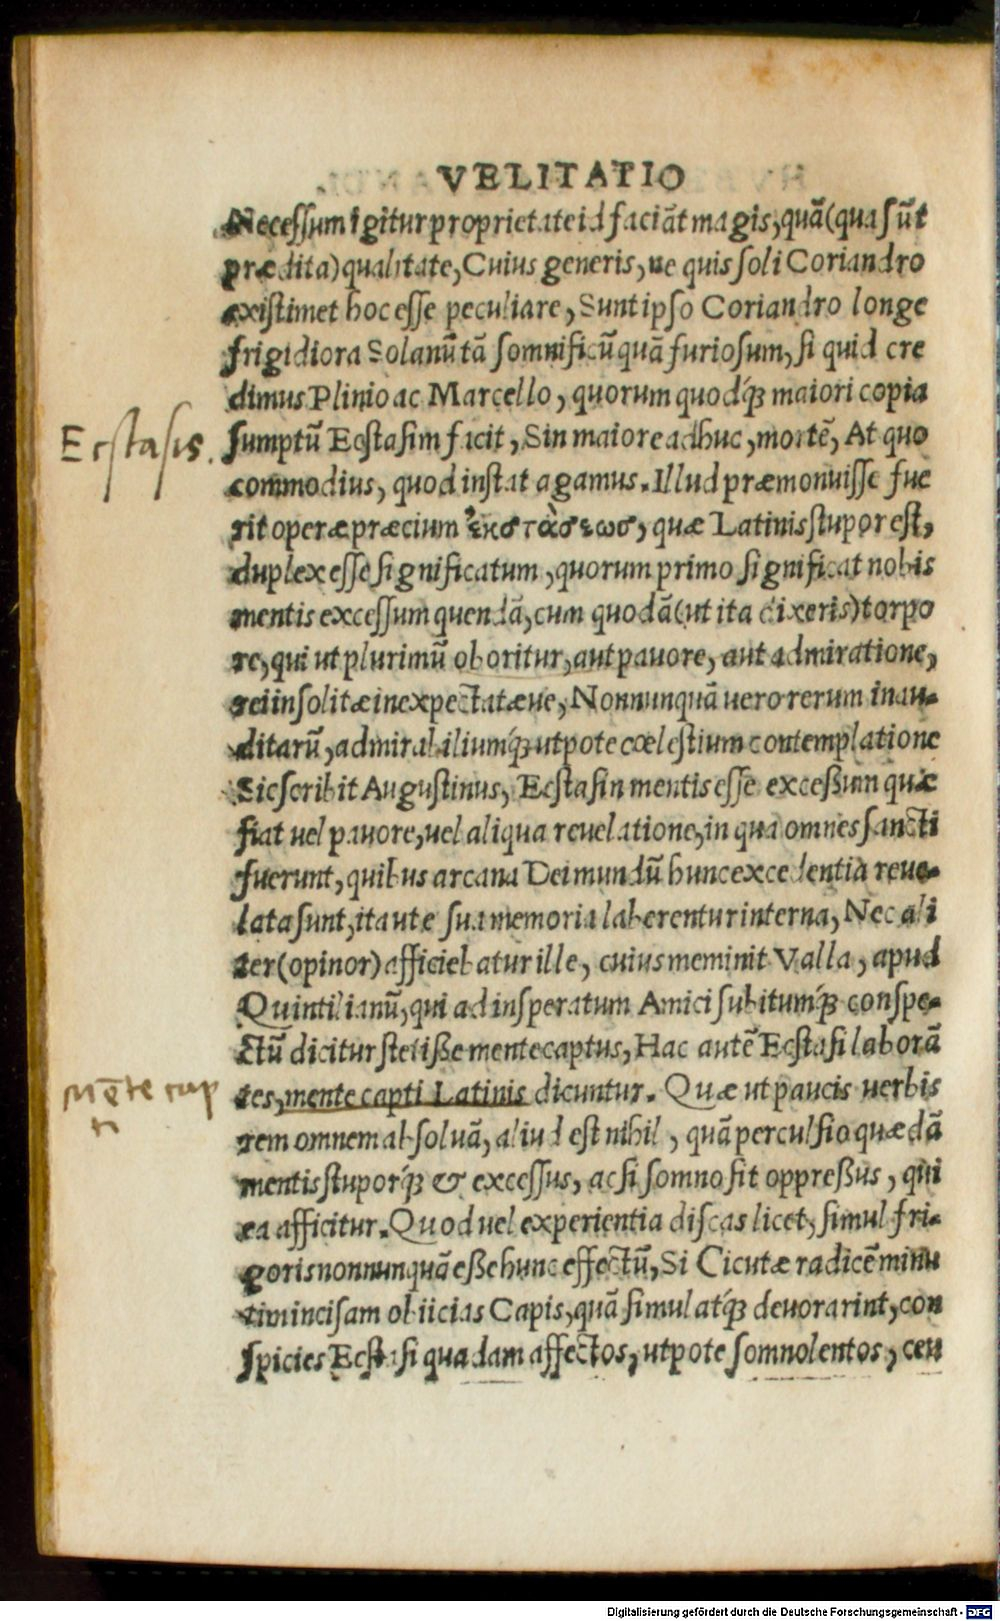 VELITATIO
Necessum igitur proprietate id faciāt magis, quā (qua sūt
prædita) qualitate, Cuius generis, ne quis soli Coriandro
existimet hoc esse peculiare, Sunt ipso Coriandro longe
frigidiora Solanū tā somnificū quā furiosum, si quid cre
dimus Plinio ac Marcello, quorum quodq́; maiori copia
sumptū Ecstasim facit, Sin maiore adhuc, mortē, At quo
Ecstasis.
commodius, quod instat agamus. Illud præmonuisse fue
rit operæpræcium ἐκστὰσεωσ, quæ Latinis stupor est,
duplex esse significatum, quorum primo significat nobis
mentis excessum quendā, cum quodā (ut ita dixeris) torpo
re, qui ut plurimū oboritur, aut pauore, aut admiratione,
rei insolitæ inexpectatæue, Nonnunquā uero rerum inau-
ditarū, admirabiliumq́; utpote cœlestium contemplatione
Sic scribit Augustinus, Ecstasin mentis esse exceßum quæ
fiat uel pauore, uel aliqua reuelatione, in qua omnes sancti
fuerunt, quibus arcana Dei mundū hunc excedentia reue-
lata sunt, ita ut e sua memoria laberentur interna, Nec ali
ter (opinor) afficiebatur ille, cuius meminit Valla, apud
Quintilianū, qui ad insperatum Amici subitumq́; conspe-
ctū dicitur stetiße mente captus, Hac autē Ecstasi laborā
tes, mente capti Latinis dicuntur. Quæ ut paucis uerbis
Mēte cap
ti
rem omnem absoluā, aliud est nihil, quā perculsio quædā
mentis stuporq́; & excessus, ac si somno sit oppreßus, qui
ea afficitur. Quod uel experientia discas licet, simul fri-
goris nonnunquā eße hunc effectū, Si Cicutæ radicē minu
tim incisam obiicias Capis, quā simul atq́; deuorarint, con
spicies Ecstasi quadam affectos, utpote somnolentos, ceu
Digitalisierung gefördert durch die Deutsche Forschungsgemeinschaft - DFG